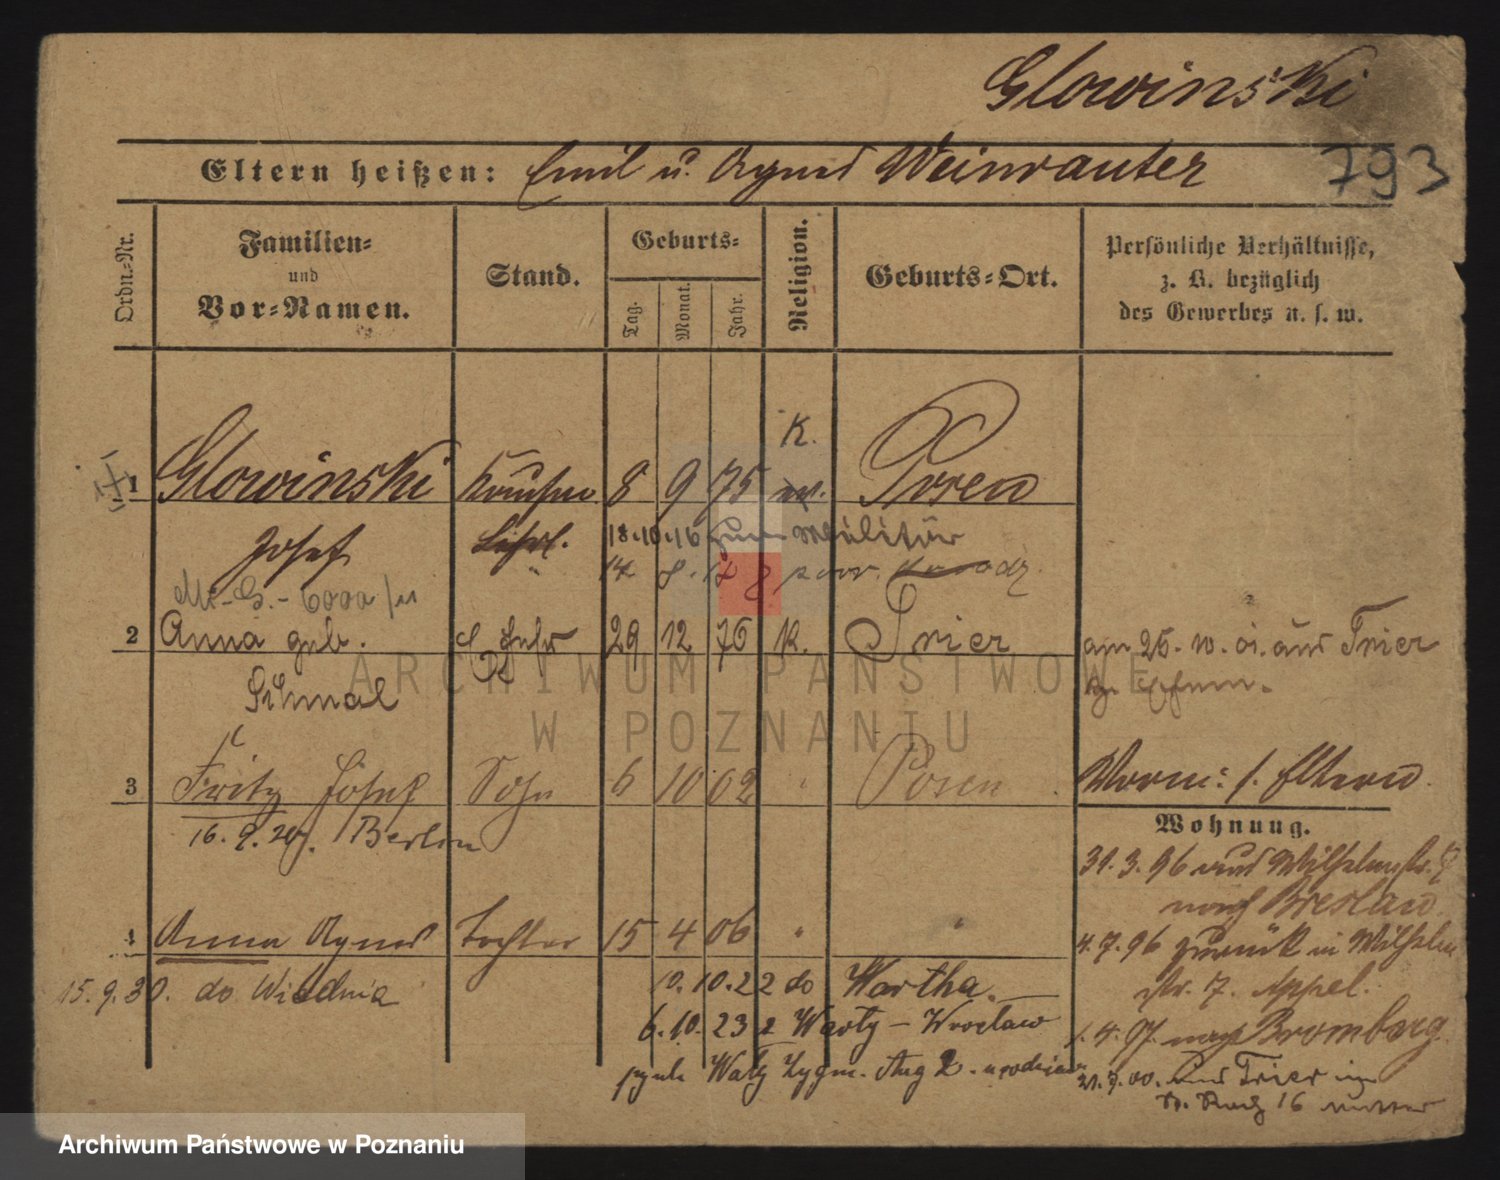 Glowinski
Eltern heißen: Emil u. Agnes Weinrauter
793
Ordn.-Nr.
Familien-
und
Vor-Namen.
Stand.
Geburts-
Tag.
Monat.
Jahr.
Religion.
Geburts-Ort.
Persönliche Verhältnisse,
z. B. bezüglich
des Gewerbes u. s. w.
K.
1 Glowinski Kaufm. 8 9 75 Posen
Josef Lehrl. 18.10.16 zum Militär
14 8. 17 z
M.-G.-6000/11
2 Anna geb. Ehefr 29 12 76 K. Trier am 25. 10. 01. aus Trier
Schmal
3 Fritz Josef Sohn 6 10 02 " Posen Vorm: s. Eltern
16. 9. 20. Berlin
Wohnung.
31.3.96 aus Wilhelmstr. 7
nach Breslau.
4 Anna Agnes Tochter 15 4 06 " " 4.7.96 zurück in Wilhelm
15.9.30. do Wiednia 10.10.22 do Wartha. str. 7. Appel.
6.10.23 z Warty - Wrocław 1.4.97. nach Bromberg
Wały Zygm. Aug 2. 21.9.00. aus Trier in
16
ARCHIWUM PAŃSTWOWE
W POZNANIU
Archiwum Państwowe w Poznaniu